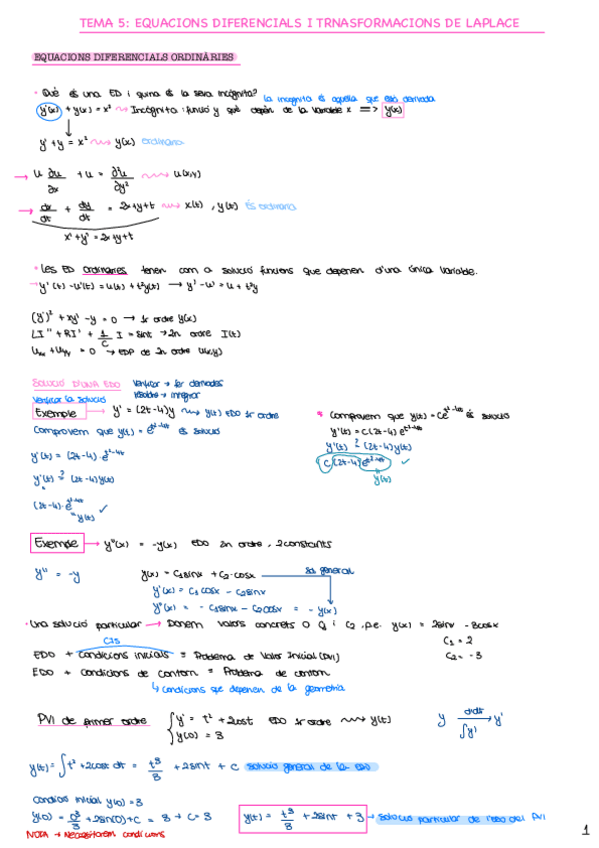 TEMA 5: EQUACIONS DIFERENCIALS I TRNASFORMACIONS DE LAPLACE
EQUACIONS DIFERENCIALS ORDINÀRIES
• Què és una ED i quina és la seva incògnita?
la incògnita és aquella que està derivada
y'(x) + y(x) = x² ⇝ Incògnita: funció y que depèn de la variable x => y(x)
y' + y = x² ⇝ y(x) ordinaria
→ u ∂u/∂x + u = ∂²u/∂y² ⇝ u(x,y)
→ dx/dt + dy/dt = 2x+y+t ⇝ x(t), y(t) és ordinaria
x' + y' = 2x+y+t
• Les ED ordinàries tenen com a solució funcions que depenen d'una única variable.
→ y'(t) - u'(t) = u(t) + t²y(t) → y' - u' = u + t²y
(y')² + xy' - y = 0 → 1r ordre y(x)
LI'' + RI' + 1/C I = sint → 2n ordre I(t)
Uxx + Uyy = 0 → EDP de 2n ordre u(x,y)
SOLUCIÓ D'UNA EDO Verificar → fer derivades
Resoldre → integrar
Verificar la solució
Exemple → y' = (2t-4)y ⇝ y(t) EDO 1r ordre
Comprovem que y(t) = e^(t²-4t) és solució
y'(t) = (2t-4)·e^(t²-4t)
y'(t) ?= (2t-4)y(t)
(2t-4)·e^(t²-4t) ✓
= y(t)
* Comprovem que y(t) = Ce^(t²-4t) és solució
y'(t) = C(2t-4)e^(t²-4t)
y'(t) ?= (2t-4)y(t)
C(2t-4)e^(t²-4t) ✓
y(t)
Exemple → y''(x) = -y(x) EDO 2n ordre, 2 constants
y'' = -y y(x) = C1sinx + C2·cosx sol general
y'(x) = C1cosx - C2sinx
y''(x) = -C1sinx - C2cosx = -y(x)
• Una solució particular → Donem valors concrets a C1 i C2. p.e. y(x) = 2sinx - 3cosx
C1 = 2
C2 = -3
EDO + condicions inicials = Problema de Valor Inicial (PVI)
EDO + Condicions de contorn = Problema de contorn
↳ condicions que depenen de la geometria
PVI de primer ordre { y' = t² + 2cost EDO 1r ordre ⇝ y(t)
y(0) = 3
y d/dt → y'
∫y'
y(t) = ∫t² + 2cost dt = t³/3 + 2sint + C solució general de la EDO
Condició inicial y(0) = 3
y(0) = 0³/3 + 2sin(0) + C = 3 → C = 3
y(t) = t³/3 + 2sint + 3 → solució particular de PVI
NOTA → Necessitarem condicions
1